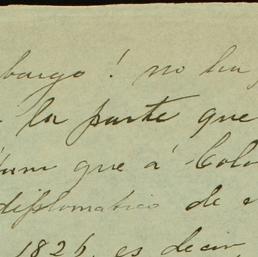 bargo! no ha
la parte que
que á Colo
diplomatico de
1826, es decir,